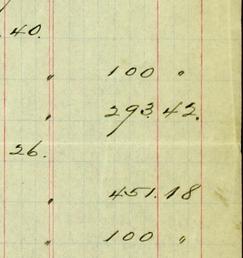 40.
" 100 "
" 293.42.
26.
" 451.18
" 100 "